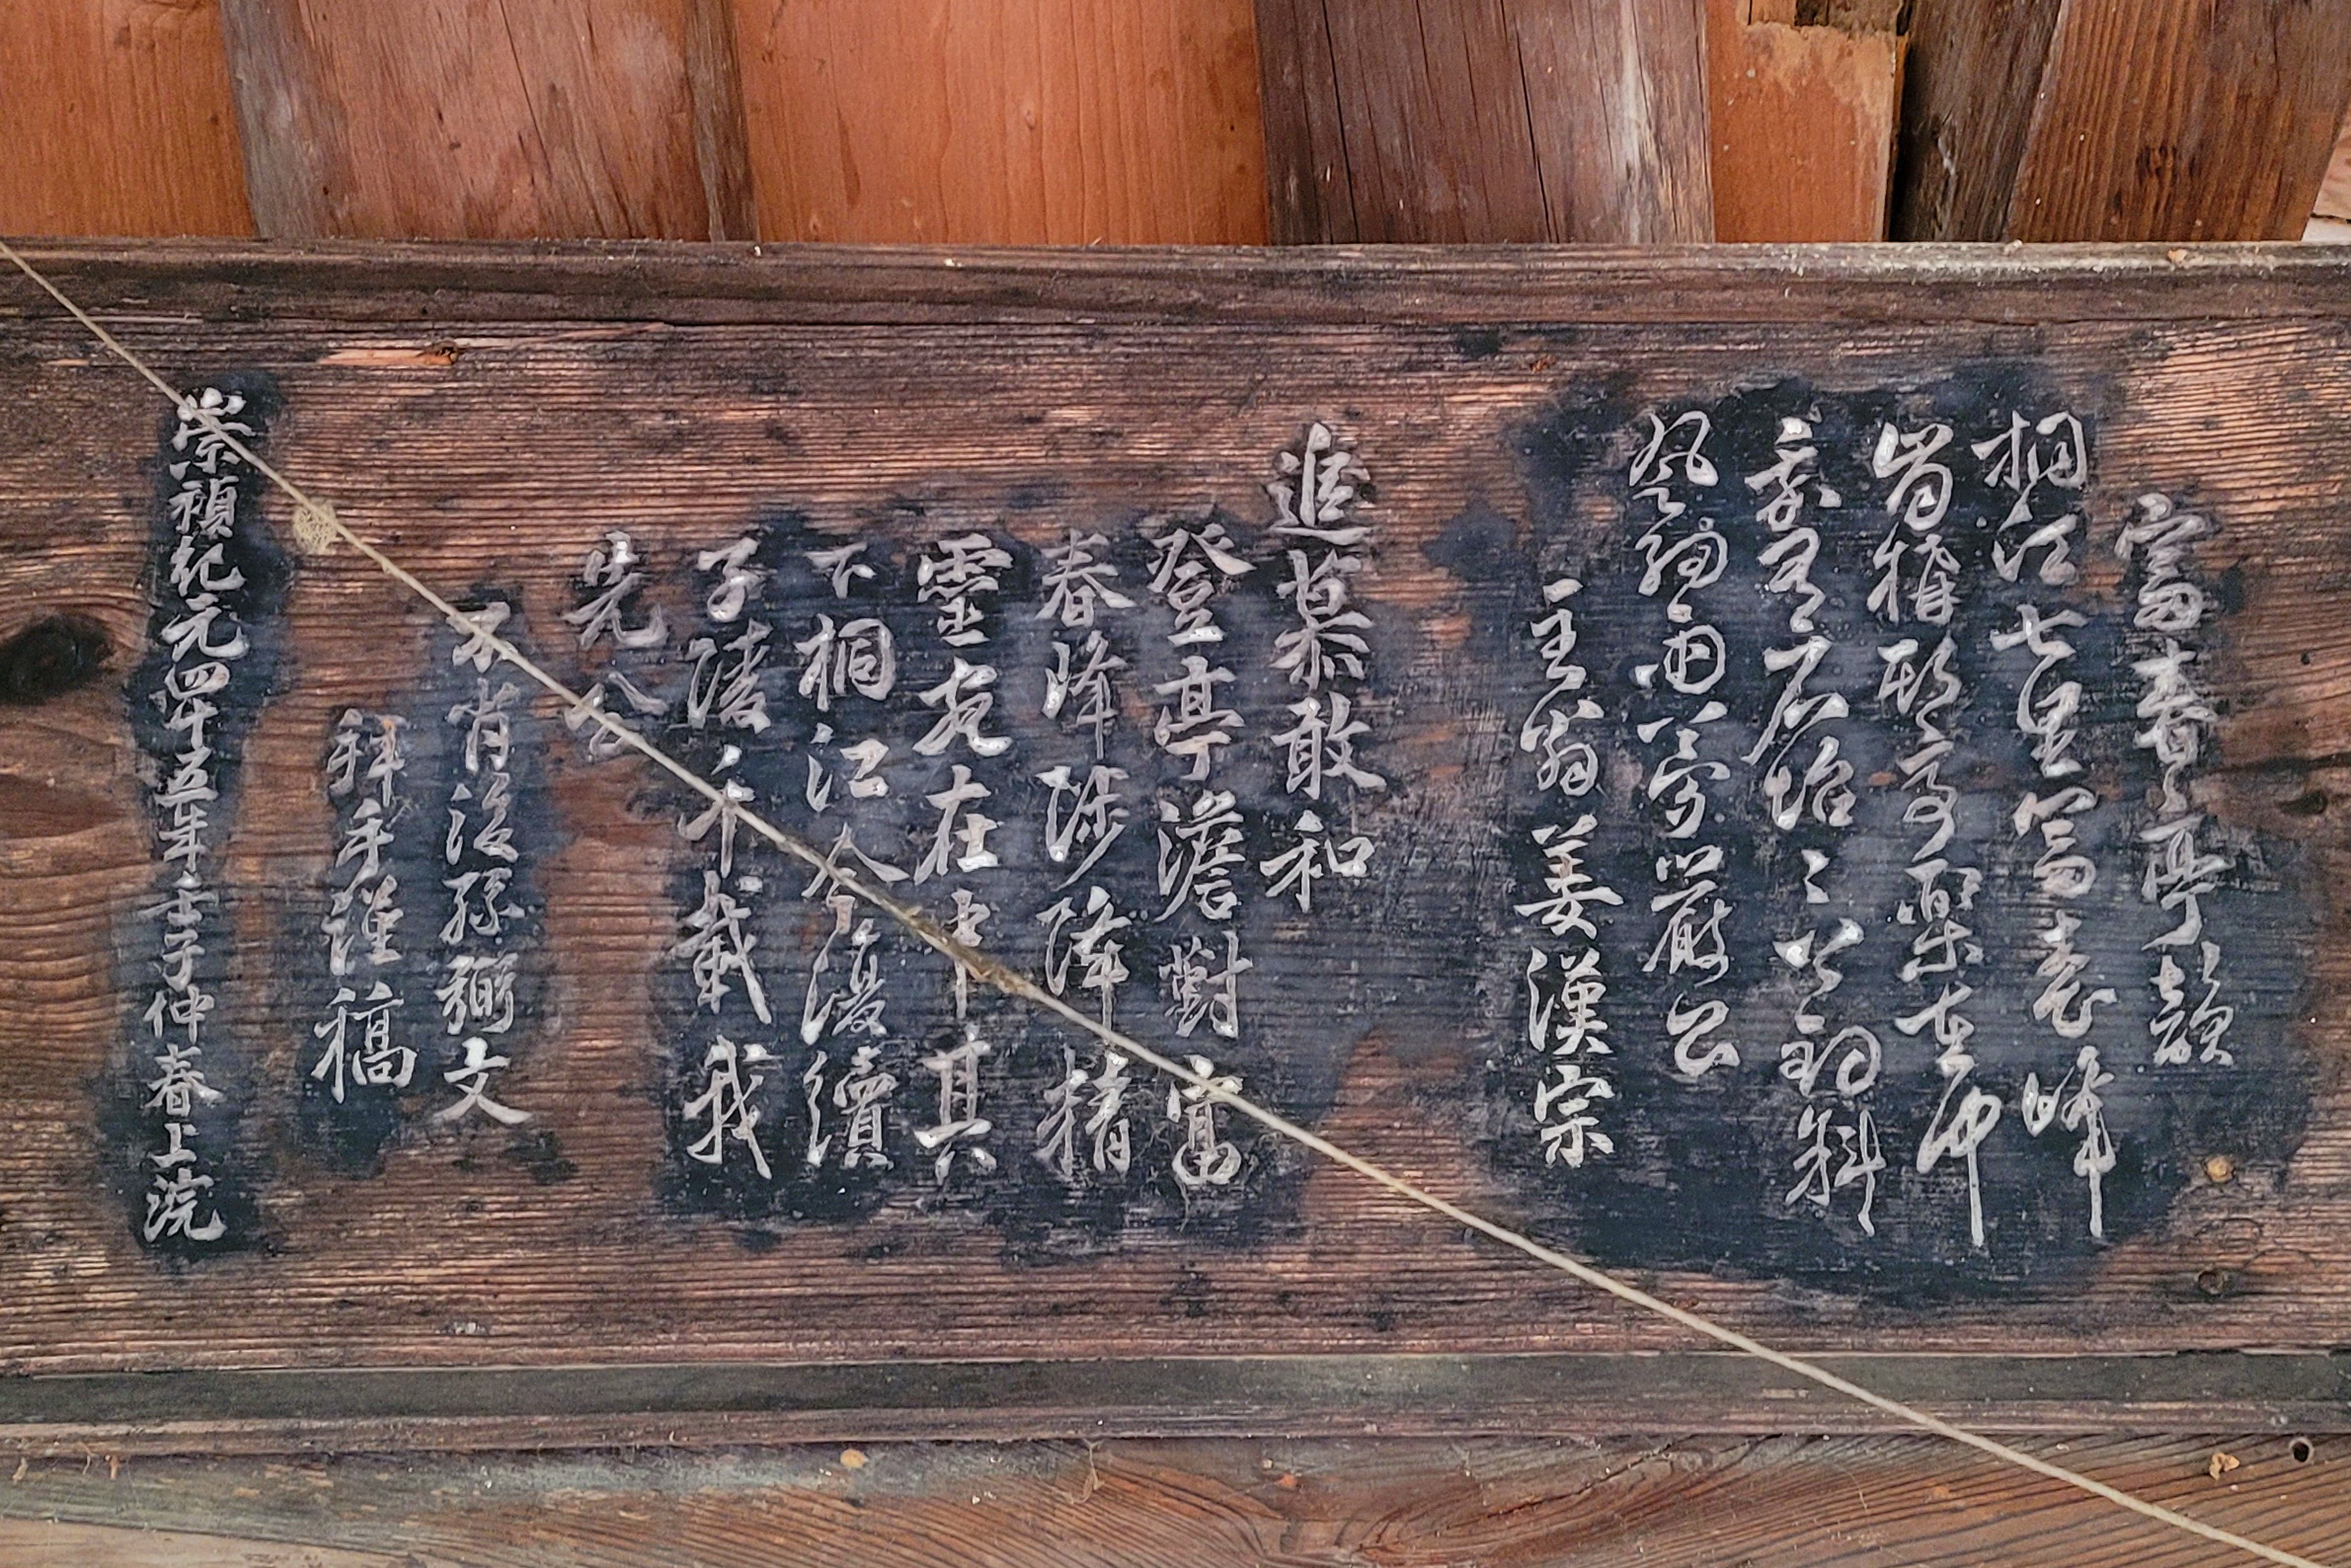 富春亭韻
桐江七里富春峰
肯構亭在中
有石坮〻釣斜
風細雨嚴公
主翁姜漢宗
追慕敢和
登亭澹對富
春峰陟降精
靈宛在中其
下桐江今復續
子陵千載我
先公
不肖後孫弼文
拜手謹稿
崇禎紀元四十五年壬子仲春上浣